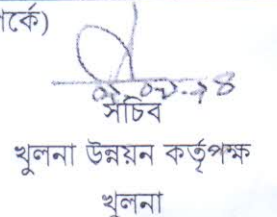 র্কে)
সচিব
খুলনা উন্নয়ন কর্তৃপক্ষ
খুলনা